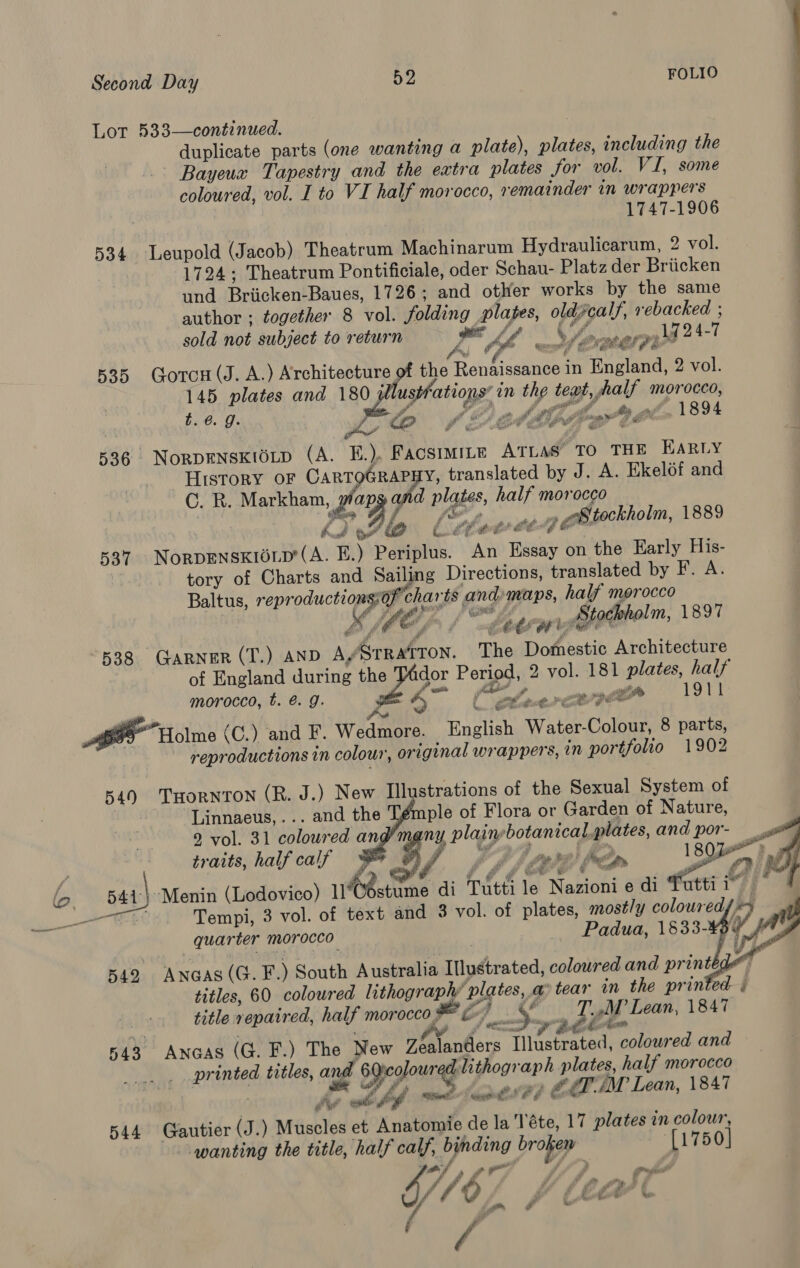 Second Day 52 FOLIO
Lot 533—continued.
duplicate parts (one wanting a plate), plates, including the
Bayeux Tapestry and the extra plates for vol. VI, some
coloured, vol. I to VI half morocco, remainder in wrappers
1747-1906
534 Leupold (Jacob) Theatrum Machinarum Hydraulicarum, 2 vol.
1724; Theatrum Pontificiale, oder Schau- Platz der Brücken
und Brücken-Baues, 1726; and other works by the same
author; together 8 vol. folding plates, old calf, rebacked;
sold not subject to return 1724-7
535 Gotch (J. A.) Architecture of the Renaissance in England, 2 vol.
145 plates and 180 illustrations in the text, half morocco,
t. e. g. 1894
536 Nordenskiöld (A. E.). Facsimile Atlas to the Early
History of Cartography, translated by J. A. Ekelöf and
C. R. Markham, maps and plates, half morocco
Stockholm, 1889
537 Nordenskiöld (A. E.) Periplus. An Essay on the Early His-
tory of Charts and Sailing Directions, translated by F. A.
Baltus, reproductions of charts and maps, half morocco
Stockholm, 1897
538 Garner (T.) and A. Stratton. The Domestic Architecture
of England during the Tudor Period, 2 vol. 181 plates, half
morocco, t. e. g. 1911
Holme (C.) and F. Wedmore. English Water-Colour, 8 parts,
reproductions in colour, original wrappers, in portfolio 1902
540 Thornton (R. J.) New Illustrations of the Sexual System of
Linnaeus,... and the Temple of Flora or Garden of Nature,
2 vol. 31 coloured and many plain botanical plates, and por-
traits, half calf 1807
541 Menin (Lodovico) Il Costume di Tutti le Nazioni e di Tutti i
Tempi, 3 vol. of text and 3 vol. of plates, mostly coloured,
quarter morocco Padua, 1833-
542 Angas (G. F.) South Australia Illustrated, coloured and printed
titles, 60 coloured lithograph plates, a tear in the printed
title repaired, half morocco T. M'Lean, 1847
543 Angas (G. F.) The New Zealanders Illustrated, coloured and
printed titles, and 60 coloured lithograph plates, half morocco
T. M'Lean, 1847
544 Gautier (J.) Muscles et Anatomie de la Tête, 17 plates in colour,
wanting the title, half calf, binding broken [1750]